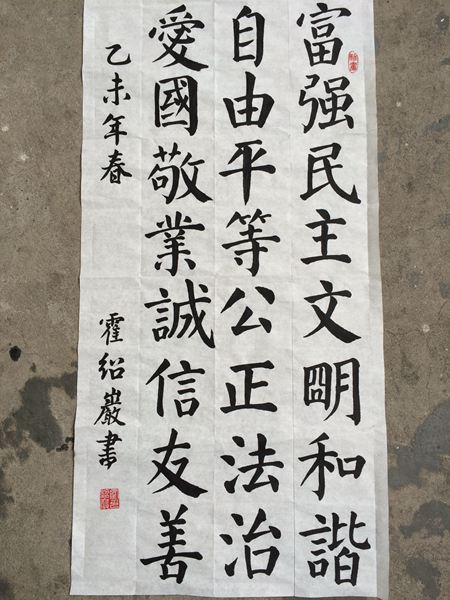 富强民主文明和諧
自由平等公正法治
愛國敬業誠信友善
乙未年春
霍紹巖書